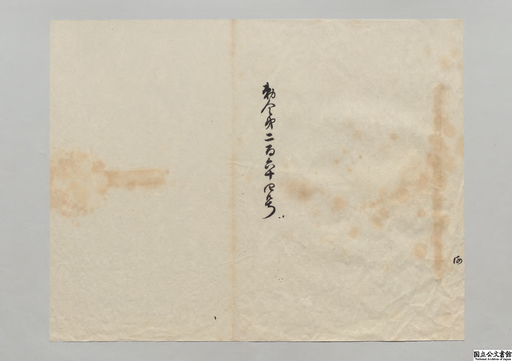 勅令第二百六十四号
国立公文書館
National Archives of Japan